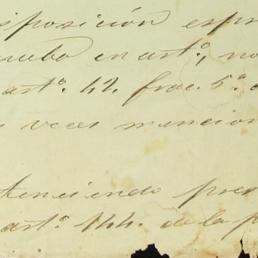 isposición espr
ueba en artº., no
artº. 42. frac. 5ª. 
s veces mencion
teniendo pres
artº. 144. de la p